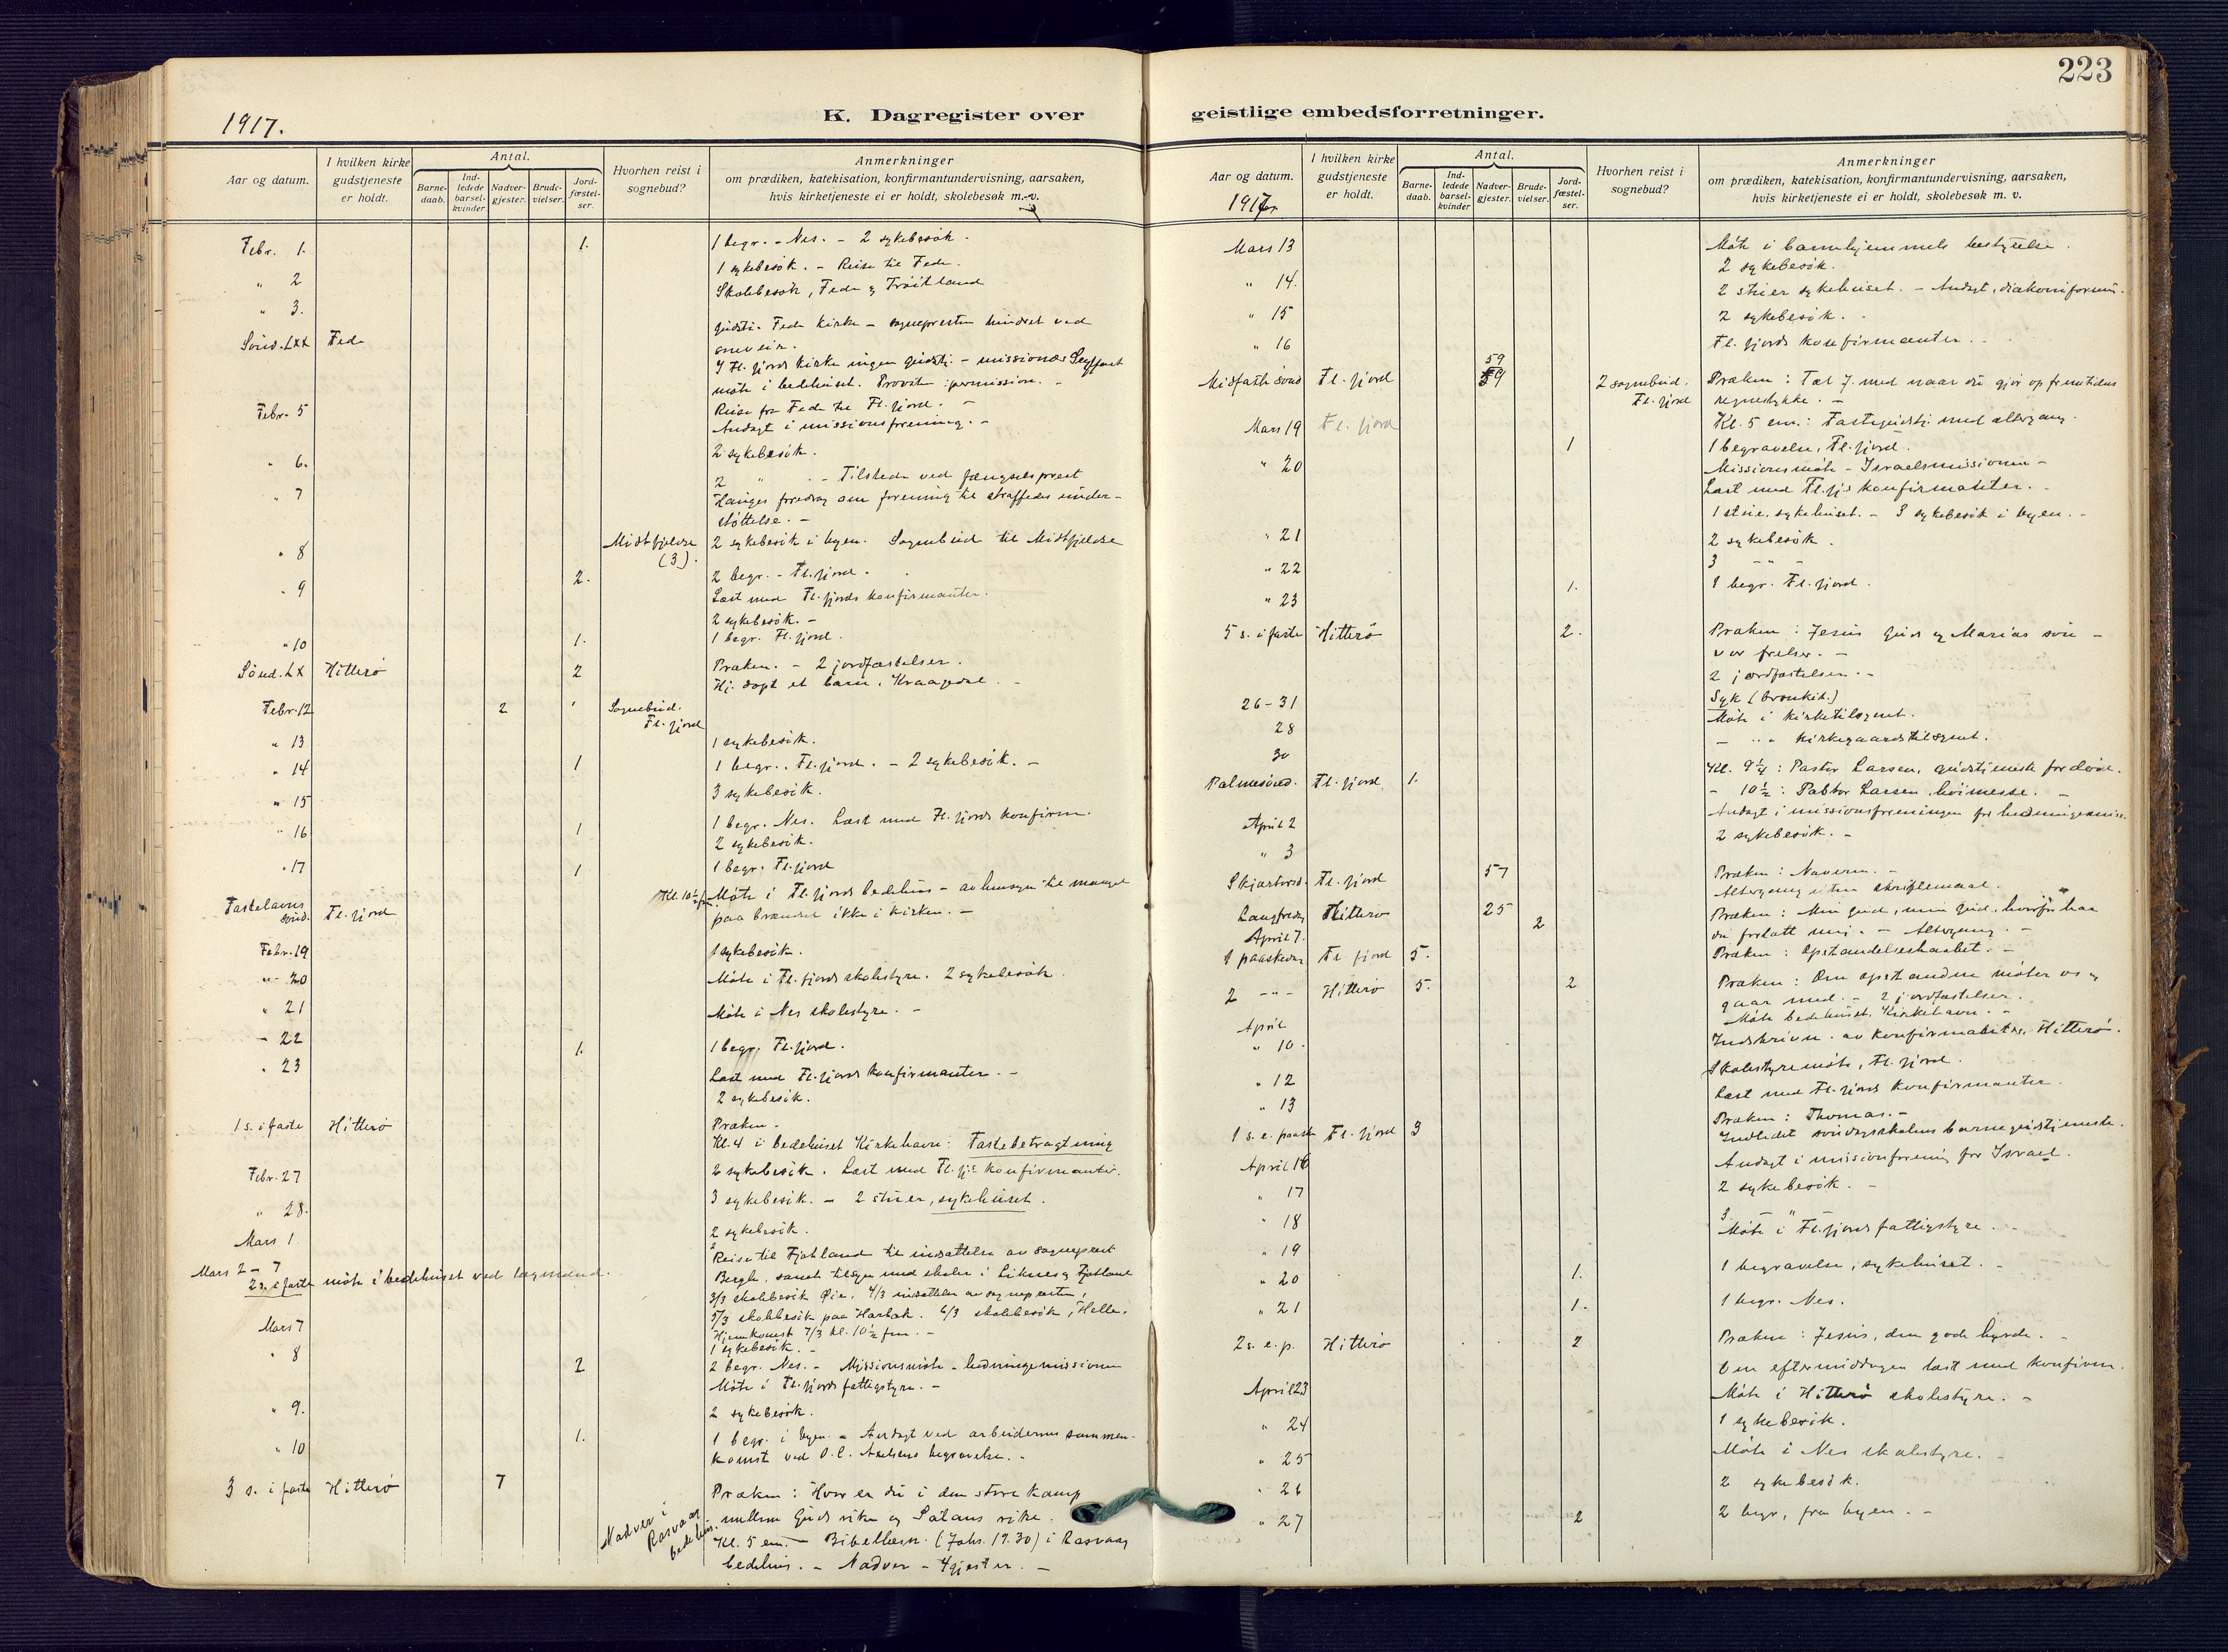 223
K. Dagregister over geistlige embedsforretninger.
1917.
Aar og datum.
I hvilken kirke gudstjeneste er holdt.
Antal.
Barne-daab.
Ind-ledede barsel-kvinder.
Nadver-gjester.
Brude-vielser.
Jord-fæstel-ser.
Hvorhen reist i sognebud?
Anmerkninger
om prædiken, katekisation, konfirmantundervisning, aarsaken,
hvis kirketjeneste ei er holdt, skolebesøk m. v.
Febr. 1. 1. 1 begr. - Nes. - 2 sykebesøk.
1 sykebesøk. - Reise til Feda.
" 2 Skolebesøk, Feda og Tröitland
" 3.
Sönd. LXX Feda gudstj. Feda kirke - sognepresten hindret ved
snøveir.
I Fl. fjords kirke ingen gudstj. - missionær
møte i bedehuset. Provsten permission. -
Febr. 5 Reise fra Feda til Fl. fjord. -
Andagt i missionsforening. -
" 6. 2 sykebesøk.
" 7 2 " - Tilstede ved fængselsprest
Hauges foredrag om forening til straffedes under-
støttelse. -
" 8 Midtfjeldse (3). 2 sykebesøk i byen. Sognebud til Midtfjeldse
" 9 2. 2 begr. - Fl. fjord.
Læst med Fl. fjords konfirmanter.
2 sykebesøk. -
" 10 1. 1 begr. Fl. fjord.
Sönd. LX Hitterö 2 Præken. - 2 jordfæstelser.
Hj. døpt et barn, Kraagedal. -
Febr. 12 2 Sognebud. Fl. fjord
" 13 1 sykebesøk.
" 14 1 1 begr. Fl. fjord. - 2 sykebesøk. -
" 15 3 sykebesøk.
" 16 1 1 begr. Nes. Læst med Fl. fjords konfirm.
2 sykebesøk.
" 17 1 1 begr. Fl. fjord
Fastelavns sönd. Fl. fjord Kl. 10½ fm. Møte i Fl. fjords bedehus - av hensyn til mangel
paa brændsel ikke i kirken. -
Febr. 19 1 sykebesøk.
" 20 Møte i Fl. fjords skolestyre. 2 sykebesøk.
" 21 Møte i Nes skolestyre. -
- 22 1. 1 begr. Fl. fjord.
" 23 Læst med Fl. fjords konfirmanter. -
2 sykebesøk.
1 s. i faste Hitterö Præken -
Kl. 4 i bedehuset Kirkehavn: Fastebetragtning
Febr. 27 2 sykebesøk. Læst med Fl. fj.s konfirmanter.
" 28. 3 sykebesøk. - 2 stuer, sykehuset.
Mars 1 2 sykebesøk.
Mars 2 - 7 Reise til Fjotland til indsættelse av sogneprest
2 s. i faste møte i bedehuset ved lægmænd. Bergh, samt tilsyn med skoler i Liknes og Fjotland
3/3 skolebesøk Öie. 4/3 indsættelse av sognepresten,
5/3 skolebesøk paa Hasbak. 6/3 skolebesøk, Helle.
Hjemkomst 7/3 kl. 10½ fm. -
Mars 7 1 sykebesøk. -
" 8 2 2 begr. Nes. - Missionsmøte - hedningemissionen
Møte i Fl. fjords fattigstyre. -
" 9. 2 sykebesøk.
" 10 1. 1 begr. i byen. - Andagt ved arbeidernes sammen-
komst ved O. C. Axelsens begravelse. -
3 s. i faste Hitterö 7 Præken: Hvor er du i den store kamp
mellem Guds rike og Satans rike.
Nadver i Rasvaag bedehus. Kl. 5 em. - Bibellæsn. (Joh. 19.30) i Rasvaag
bedehus. - Nadver - 7 gjester. -
Aar og datum.
1917.
I hvilken kirke gudstjeneste er holdt.
Antal.
Barne-daab.
Ind-ledede barsel-kvinder
Nadver-gjester.
Brude-vielser.
Jord-fæstel-ser.
Hvorhen reist i sognebud?
Anmerkninger
om prædiken, katekisation, konfirmantundervisning, aarsaken,
hvis kirketjeneste ei er holdt, skolebesøk m. v.
Mars 13 Møte i barnehjemmets bestyrelse.
2 sykebesøk.
" 14. 2 stuer sykehuset. - Andagt, diakoniforen.
" 15 2 sykebesøk.
" 16 Fl. fjords konfirmanter.
Midfaste sönd Fl. fjord 59 2 sognebud. Fl. fjord Præken: Tæl 7. med naar du gjör op fremtidens
regnestykke. -
Kl. 5 em.: Fastegudstj. med altergang.
Mars 19 Fl. fjord 1 1 begravelse, Fl. fjord.
" 20 Missionsmøte - Israelsmissionen -
Læst med Fl. fj.s konfirmanter. -
1 stue. sykehuset. - 3 sykebesøk i byen. -
" 21 2 sykebesøk.
" 22 3 - " -
" 23 1. 1 begr. Fl. fjord.
5 s. i faste Hitterö 2. Præken: Jesus Guds og Marias sön -
vor frelser. -
2 jordfæstelser. -
26-31 Syk (bronkit.)
28 Møte i kirketilsynet.
30 - " - kirkegaardstilsynet.
Palmesönd. Fl. fjord 1. Kl. 9¼: Pastor Larsen, gudstjeneste for døve.
- 10½: Pastor Larsen. høimesse. -
April 2 Andagt i missionsforeningen for hedningemiss.
" 3 2 sykebesøk. -
Skjærtorsd. Fl. fjord 57 Præken: Naveren. -
Altergang uten skriftemaal.
Langfredag Hitterö 25 Præken: Min Gud, min Gud, hvorfor har
April 7. 2 du forlatt mig. - Altergang. -
1 paaskedag Fl. fjord 5. Præken: Opstandelseshaabet. -
2 - " - Hitterö 5. 2 Præken: Den opstandne møter os og
gaar med. - 2 jordfæstelser.
Møte bedehuset, Kirkehavn. -
April
" 10. Indskrivn. av konfirmanter, Hitterö.
" 12 Skolestyremøte, Fl. fjord.
" 13 Læst med Fl. fjords konfirmanter.
1 s. e. paaske Fl. fjord 3 Præken: Thomas. -
Indledet söndagsskolens barnegudstjeneste.
April 16 Andagt i missionsforening for Israel.
" 17 2 sykebesøk. -
" 18 3 - " -
Møte i Fl. fjords fattigstyre. -
" 19
" 20 1. 1 begravelse, sykehuset. -
" 21 1. 1 begr. Nes.
2 s. e. p. Hitterö 2 Præken: Jesus, den gode hyrde. -
Om eftermiddagen læst med konfirm.
April 23 Møte i Hitterö skolestyre. -
" 24 1 sykebesøk.
" 25 Møte i Nes skolestyre. -
" 26 2 sykebesøk.
" 27 2 2 begr. fra byen. -